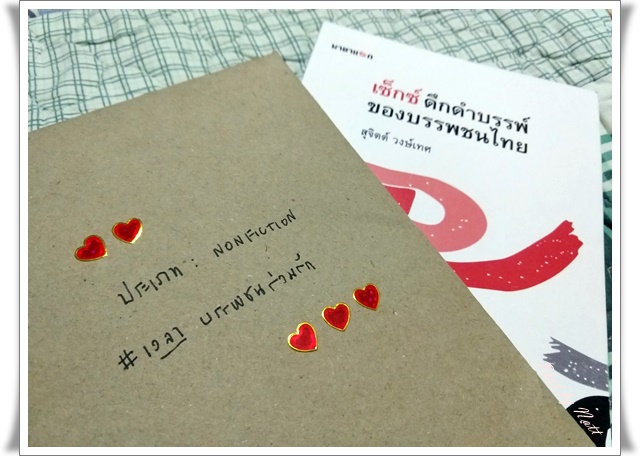 นาตาแฮก
เซ็กซ์ ดึกดำบรรพ์
ของบรรพชนไทย
สุจิตต์ วงษ์เทศ
ประเภท : NONFICTION
#เวลา บรรพชนร่วมรัก
Natt